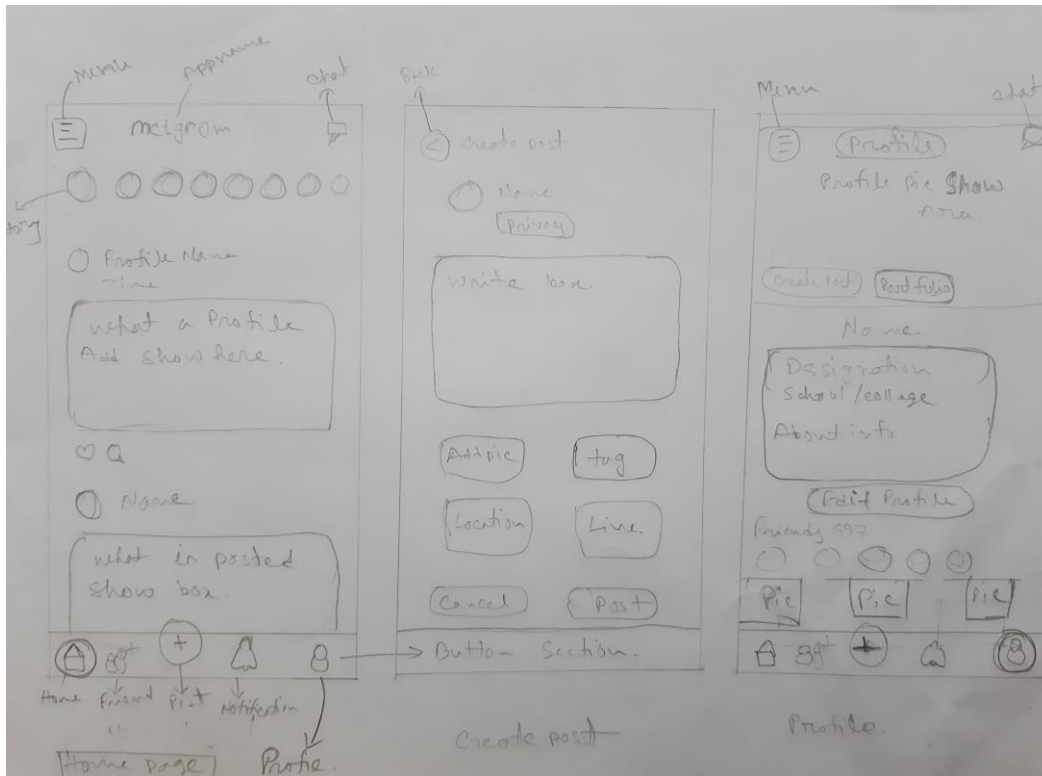 Menu
Appname
chat
metgram
Profile Name
Time
what a Profile
Add show here.
Name
what in posted
show box.
Home
Friend
Post
Notification
Home page
Profie.
Back
create post
Name
Privacy
write box.
Add pic
tag
Location
Live.
Cancel
Post
Button Section.
Create post
Menu
chat
Profile
Profile pic Show
Area.
Create Post
Name.
Designation
School/college
About info.
Edit Profile
Friends 697
Pic
Pic
Pic
Profile.